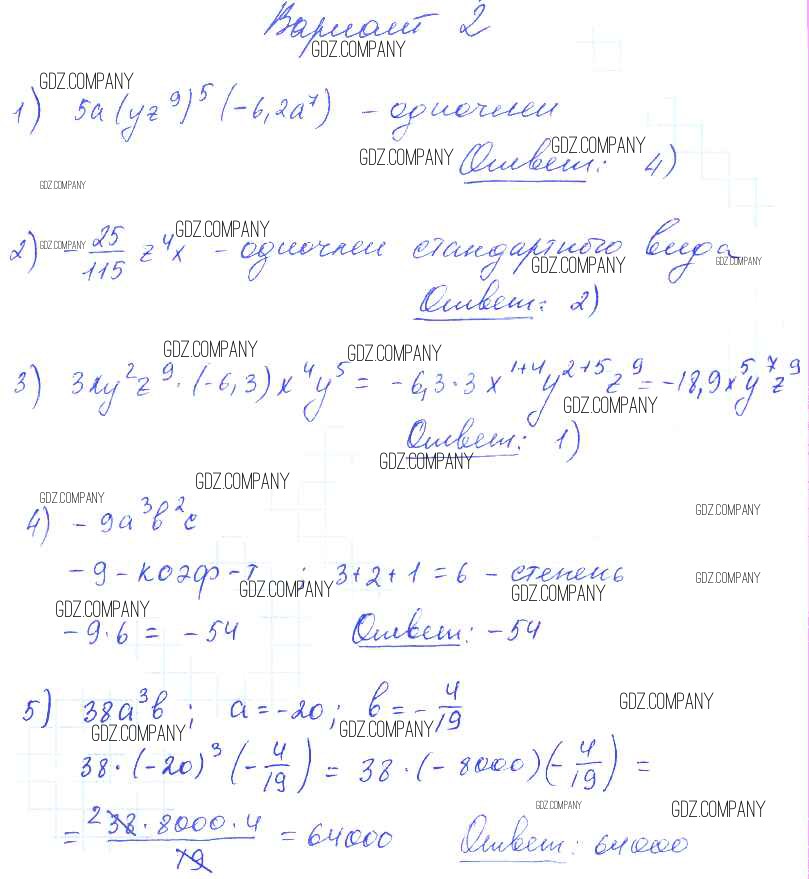 Вариант 2
GDZ.COMPANY
GDZ.COMPANY
1) 5a(yz⁹)⁵(-6,2a⁷) - одночлен
GDZ.COMPANY GDZ.COMPANY
Ответ: 4)
GDZ.COMPANY
GDZ.COMPANY
2) GDZ.COMPANY -25/115 z⁴x - одночлен стандартного вида
GDZ.COMPANY GDZ.COMPANY
Ответ: 2)
GDZ.COMPANY GDZ.COMPANY
3) 3xy²z⁹·(-6,3)x⁴y⁵ = -6,3·3x¹⁺⁴y²⁺⁵z⁹ = -18,9x⁵y⁷z⁹
GDZ.COMPANY
Ответ: 1)
GDZ.COMPANY
GDZ.COMPANY
GDZ.COMPANY GDZ.COMPANY
4) -9a³b²c
-9 - коэф-т ; 3+2+1=6 - степень
GDZ.COMPANY GDZ.COMPANY GDZ.COMPANY
GDZ.COMPANY
-9·6 = -54 Ответ: -54
GDZ.COMPANY
5) 38a³b; a=-20; b=-4/19
GDZ.COMPANY GDZ.COMPANY
38·(-20)³(-4/19) = 38·(-8000)(-4/19) =
GDZ.COMPANY GDZ.COMPANY
= 2 38·8000·4/19 = 64000 Ответ: 64000